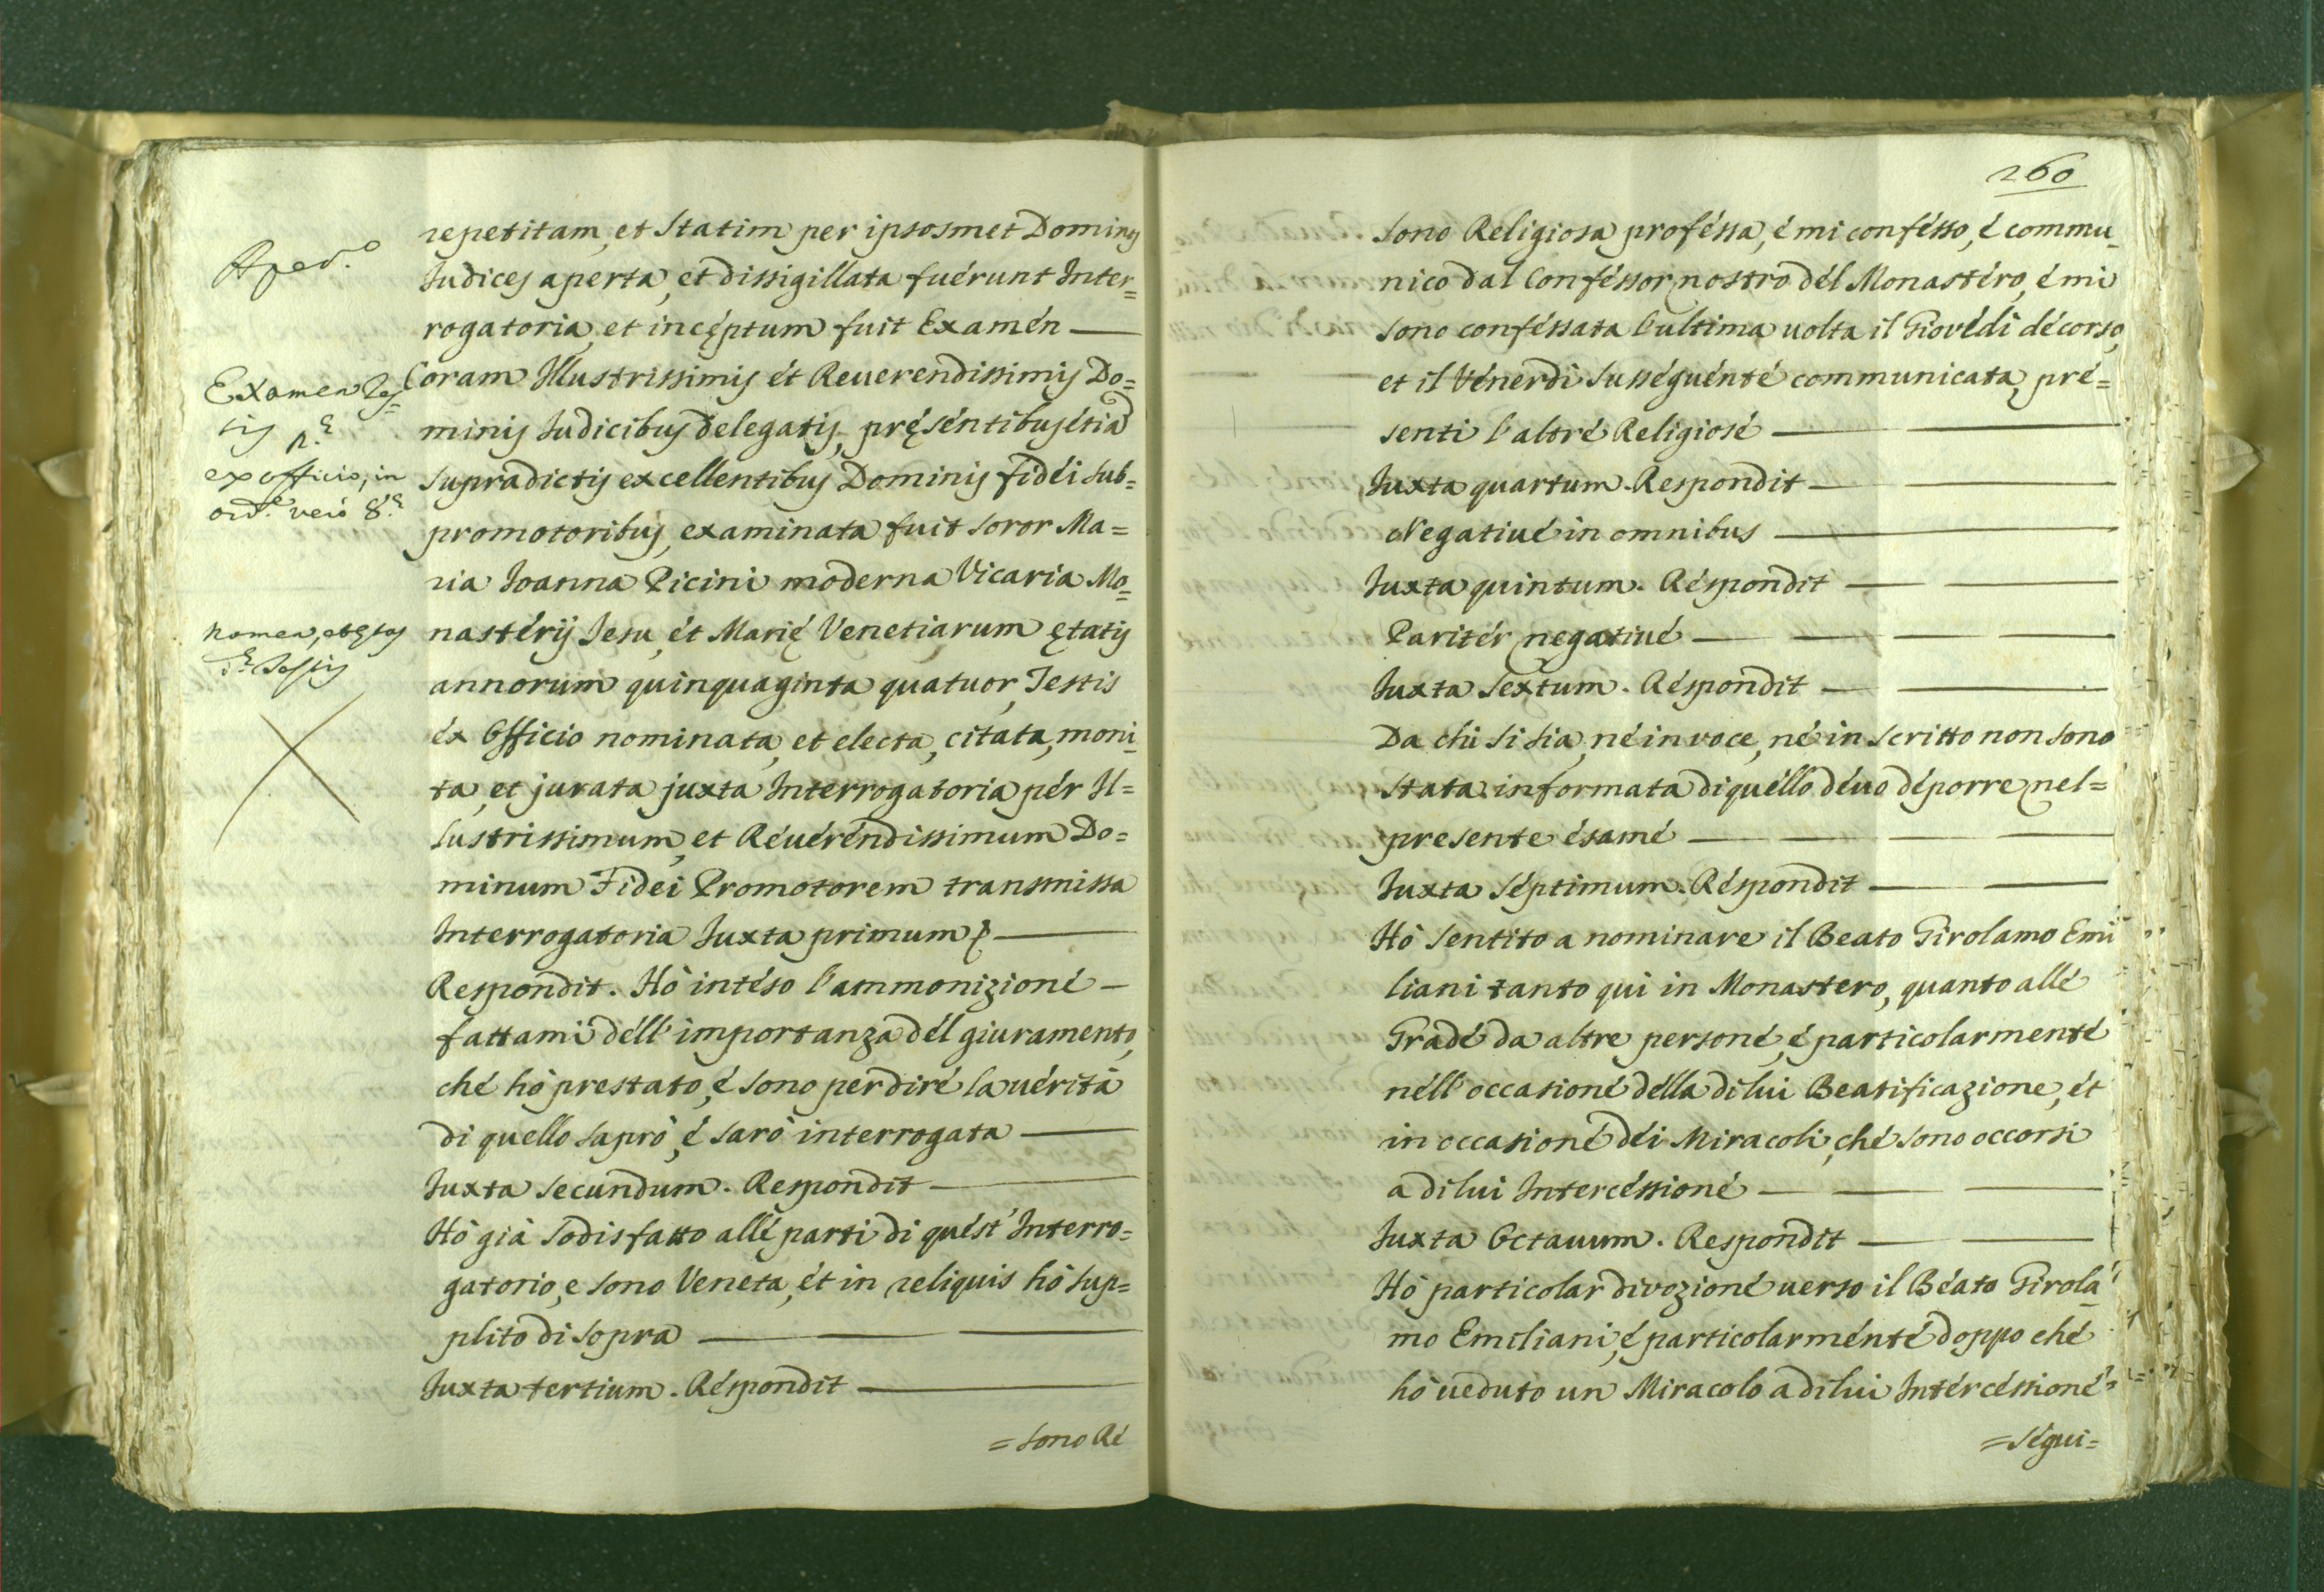 repetitam, et statim per ipsosmet Dominos
Iudices aperta, et dissigillata fuérunt Inter=
rogatoria, et incęptum fuit Examén —
Coram Illustrissimis ét Reuerendissimis Do=
minis Iudicibus delegatis, pręséntibus étia
supradictis excellentibus Dominis fidéi sub=
promotoribus, examinata fuit soror Ma=
ria Ioanna Picini moderna Vicaria Mo=
nastérij Iesu, ét Marię Venetiarum ętatis
annorum quinquaginta quatuor, Testis
éx Officio nominata, et electa, citata, moni=
ta, et jurata juxta Interrogatoria pér Il=
lustrissimum, et Réuéréndissimum Do=
minum Fidei Promotorem transmissa
Interrogatoria Iuxta primum —
Respondit. Hò intéso l'ammonizioné —
fattami déll'importanza dél giuramento,
ché hò prestato, é sono per diré la uérità
di quello saprò, é sarò interrogata —
Iuxta secundum. Respondit —
Hò già sodisfatto allé parti di quést'Interro=
gatorio, e sono Veneta, ét in reliquis hò sup=
plito di sopra — — —
Iuxta tertium. Réspondit —
= sono Ré
Aper.o
Examen Tes=
tis p.e
ex officio, in
ord.e verò 8.e
Nomen, et ętas
d.e Testis
260
sono Religiosa proféssa, é mi confésso, é commu=
nico dal Conféssor nostro dél Monastéro, é mi
sono conféssata l'ultima uolta il Giovédì décorso,
et il Vénerdì susséguénté communicata, pré=
senti l'altré Religiosé — —
Iuxta quartum. Respondit — —
Négatiué in omnibus —
Iuxta quintum. Réspondit — —
Paritér negatiué — — — —
Iuxta Sextum. Réspondit — —
Da chi si sia, né in voce, né in scritto non sono
stata informata di quéllo déuo déporre nel=
presente ésamé — — — —
Iuxta séptimum. Réspondit — —
Hò sentito a nominare il Beato Girolamo Emi
liani tanto qui in Monastero, quanto allé
Gradé da altre personé, é particolarmenté
néll'occasioné délla di lui Beatificazione, ét
in occasioné déi Miracoli, ché sono occorsi
a di lui Intercéssioné — — —
Iuxta Octauum. Respondit — —
Hò particolar divozioné uerso il Béato Girola=
mo Emiliani, é particolarménté doppo ché
hò ueduto un Miracolo a di lui Intércéssioné
= ségui=